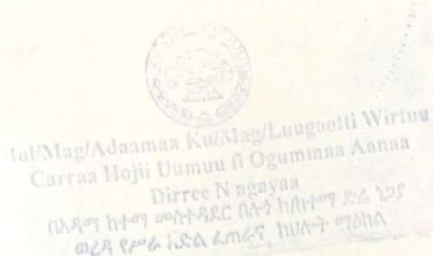 Bul/Mag/Adaamaa Ku/Mag/Luugootti Wirtuu
Carraa Hojii Uumuu fi Ogummaa Aanaa
Dirree Nagayaa
በአዳማ ከተማ መስተዳደር በሉጎ ክ/ከተማ ድሬ ነጋያ
ወረዳ የሥራ ዕድል ፈጠራና ክህሎት ማዕከል